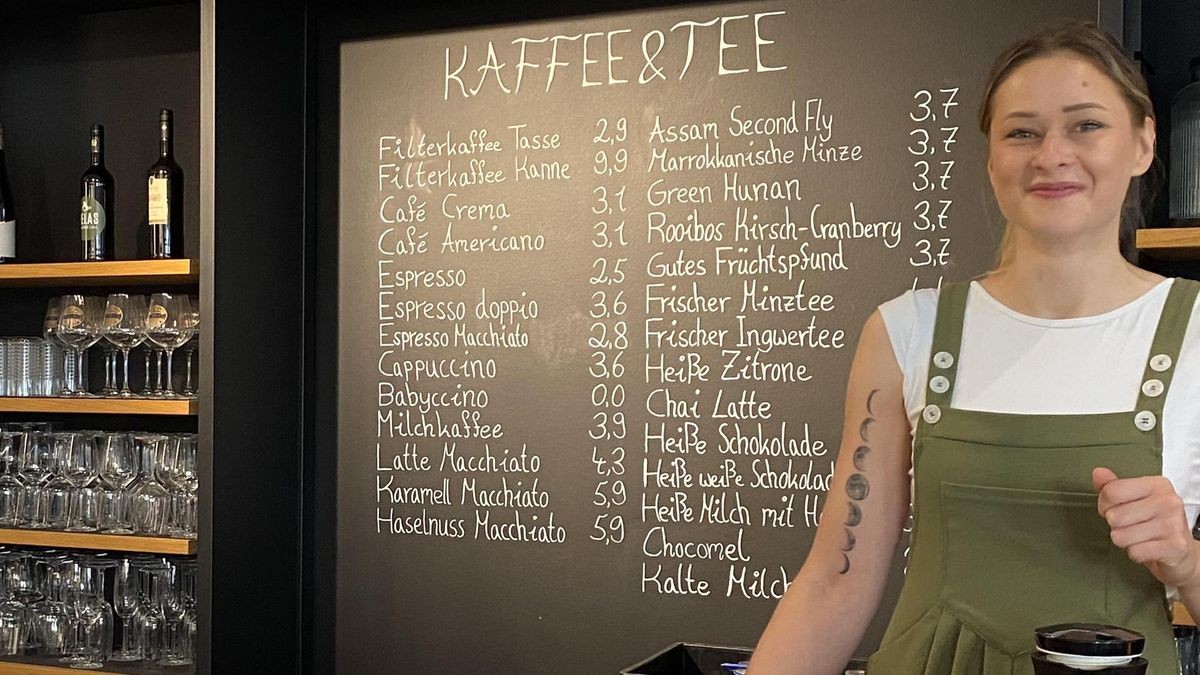 KAFFEE&TEE
Filterkaffee Tasse 2,9
Filterkaffee Kanne 9,9
Café Crema 3,1
Café Americano 3,1
Espresso 2,5
Espresso doppio 3,6
Espresso Macchiato 2,8
Cappuccino 3,6
Babyccino 0,0
Milchkaffee 3,9
Latte Macchiato 4,3
Karamell Macchiato 5,9
Haselnuss Macchiato 5,9
Assam Second Fly 3,7
Marrokkanische Minze 3,7
Green Hunan 3,7
Rooibos Kirsch-Cranberry 3,7
Gutes Früchtspfund 3,7
Frischer Minztee
Frischer Ingwertee
Heiße Zitrone
Chai Latte
Heiße Schokolade
Heiße weiße Schokolad
Heiße Milch mit H
Chocomel
Kalte Milch
ELAS